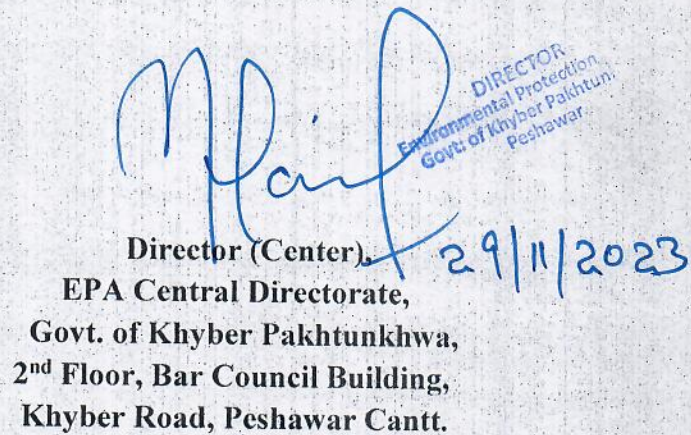 DIRECTOR
Environmental Protection
Govt: of Khyber Pakhtun.
Peshawar.
Director (Center),
29/11/2023
EPA Central Directorate,
Govt. of Khyber Pakhtunkhwa,
2nd Floor, Bar Council Building,
Khyber Road, Peshawar Cantt.